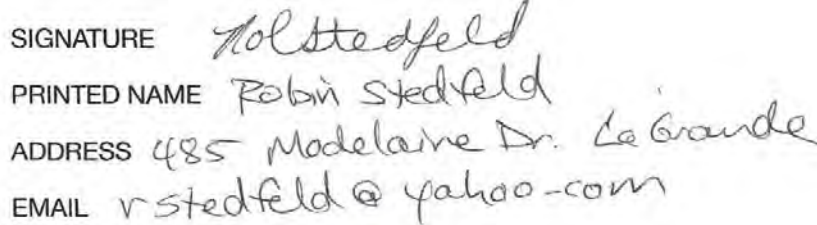 SIGNATURE Rolstedfeld
PRINTED NAME Robin Stedfeld
ADDRESS 485 Modelaine Dr. La Grande
EMAIL rstedfeld@yahoo-com